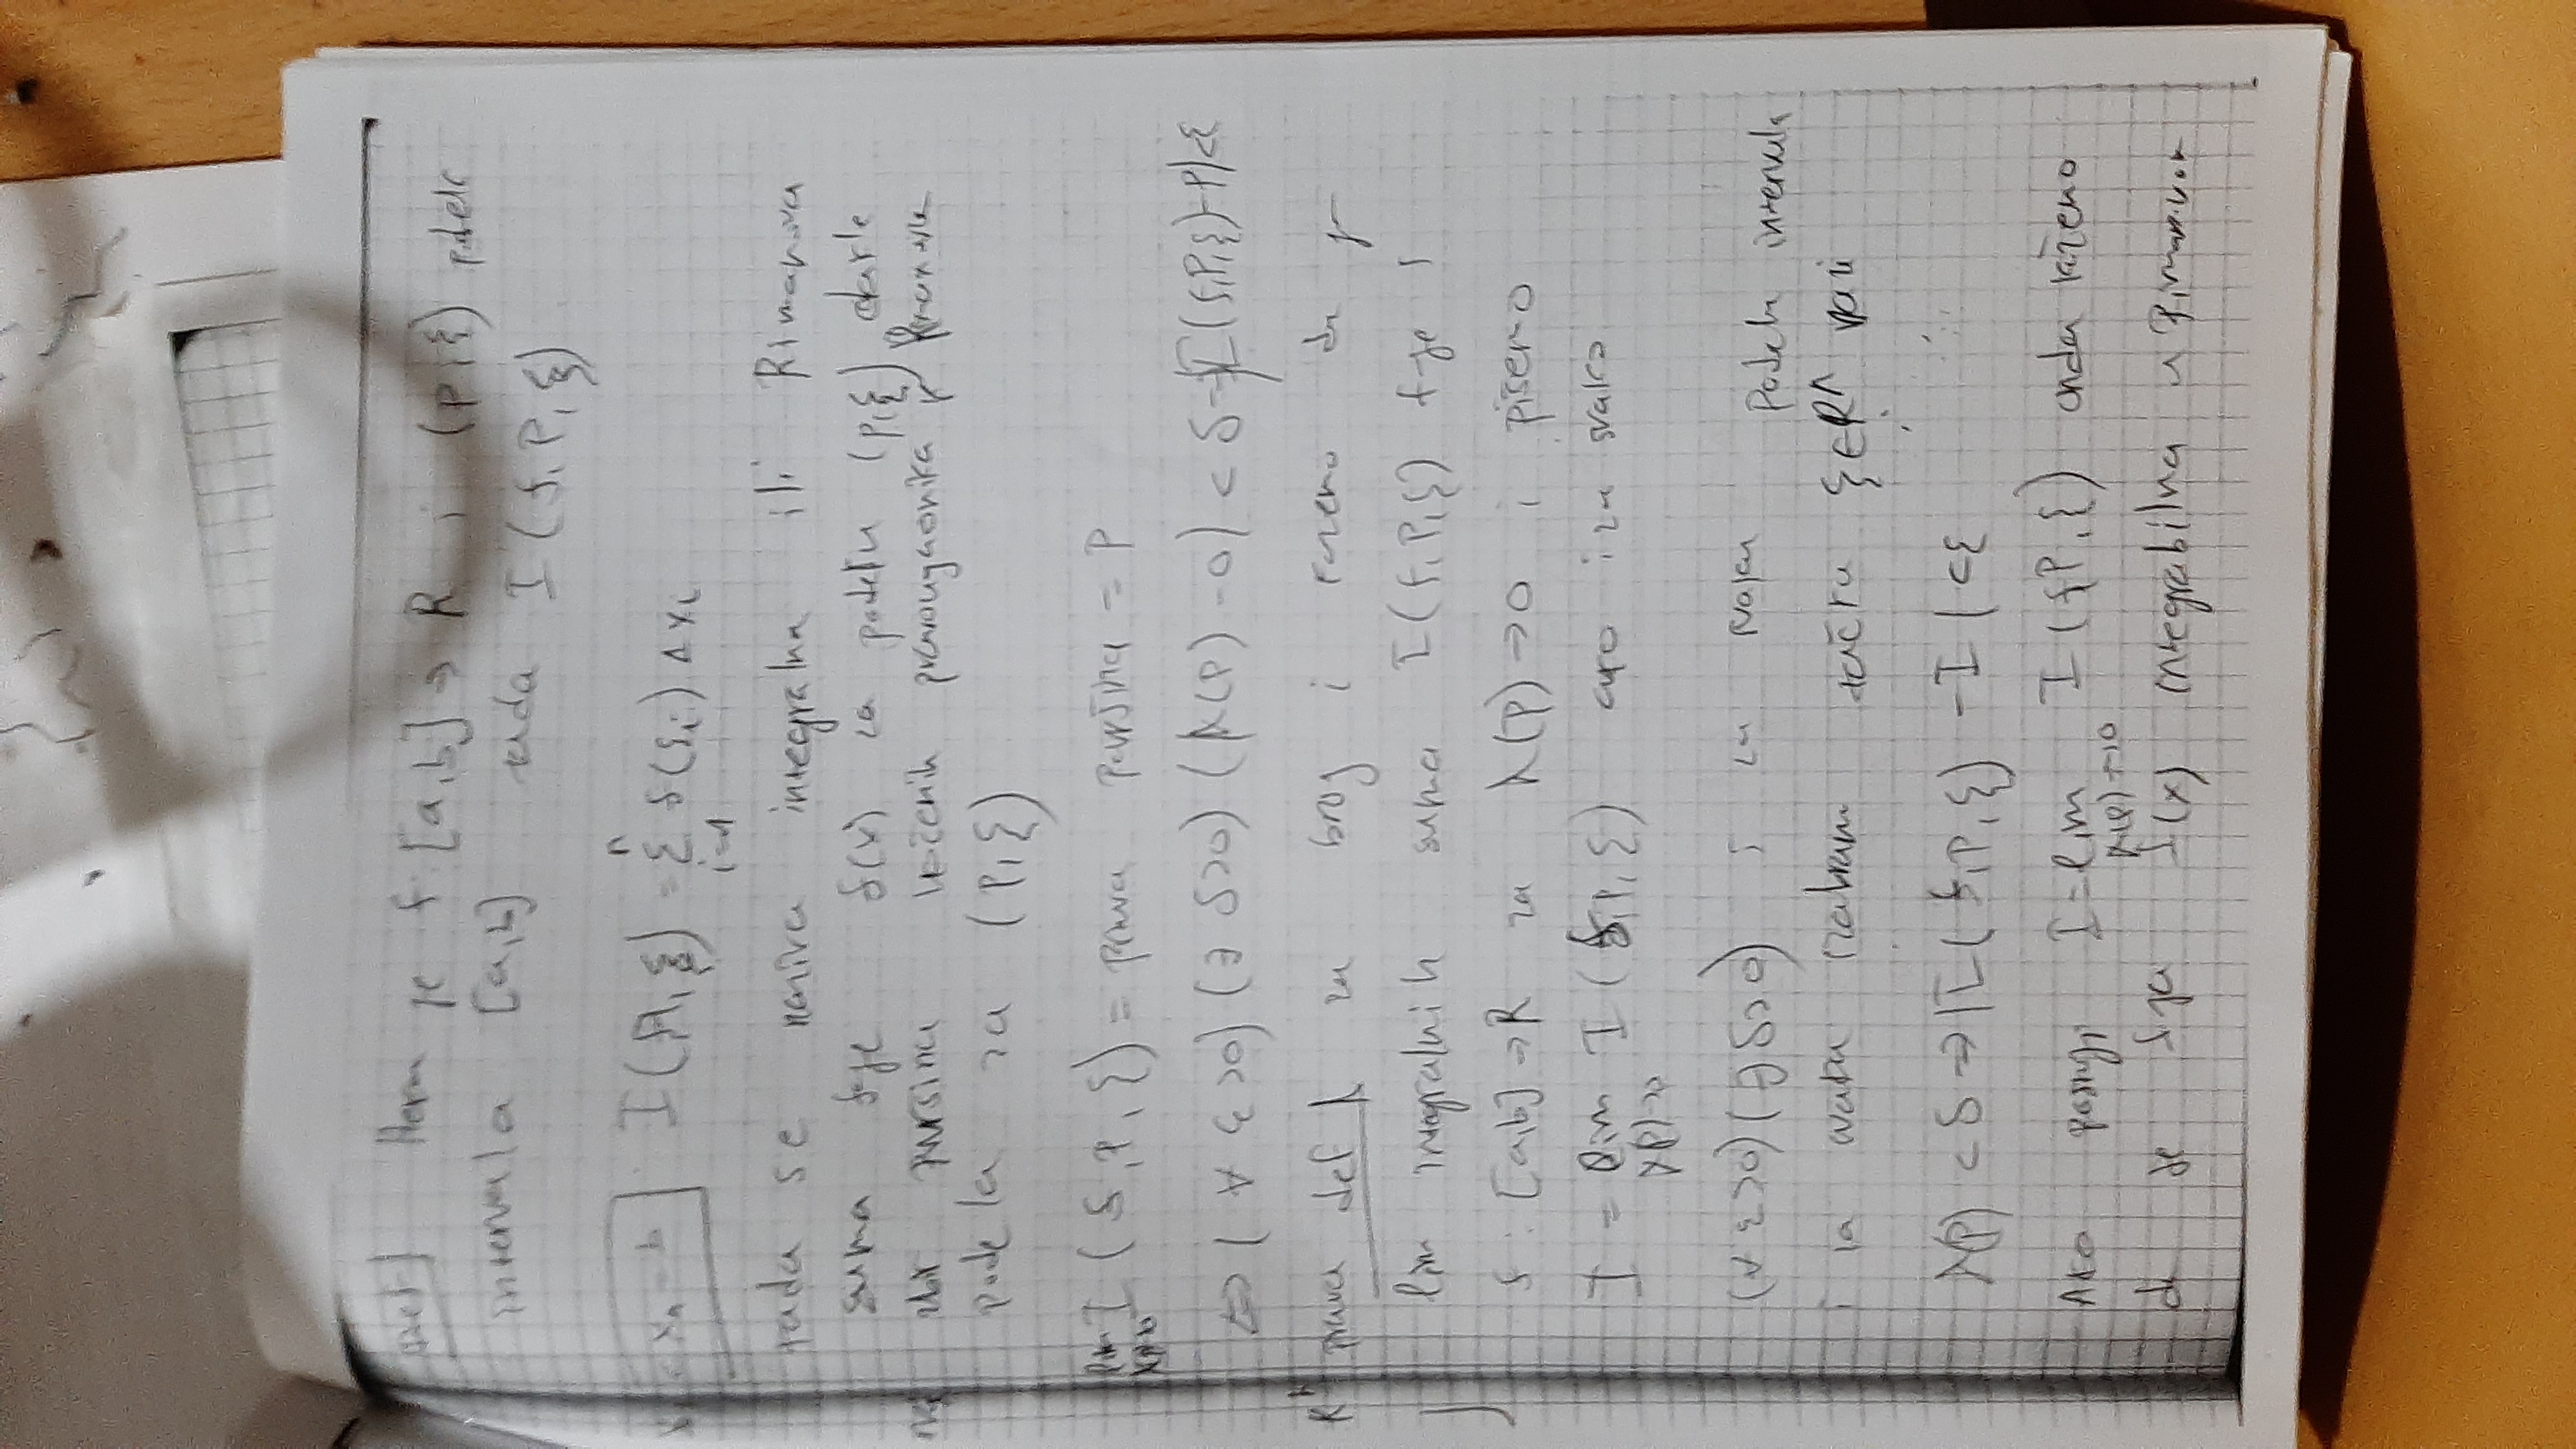 def] Neka je f: [a,b] → R i (P,ξ) podela
intervala [a,b] tada I (f,P,ξ)
= xₙ = b
I(f,P,ξ) = Σ_{i=1}^{n} f(ξᵢ) Δxᵢ
tada se naziva integralna ili Rimanova
suma f-je f(x) za podelu (P,ξ) dakle
zbir površina uočenih pravougaonika je
podela za (P,ξ)
lim_{λ(P)→0} I (f,P,ξ) = prava površina = P
⇔ (∀ ε>0) (∃ δ>0) (λ(P) - 0) < δ ⇒ |I(f,P,ξ) - P| < ε
prava def] za broj i kažemo da je
lim integralnih suma I(f,P,ξ) f-je
f: [a,b] → R za λ(P) → 0 i pišemo
I = lim_{λ(P)→0} I (f,P,ξ) ako i za svako
(∀ ε>0) (∃ δ>0) i za svaku podelu intervala
i za svaku izabranu tačku ξ ∈ Rⁿ važi
λ(P) < δ ⇒ |I(f,P,ξ) - I| < ε
Ako postoji I = lim_{λ(P)→0} I (f,P,ξ) onda kažemo
da je f-ja f(x) integrabilna u Rimanovom